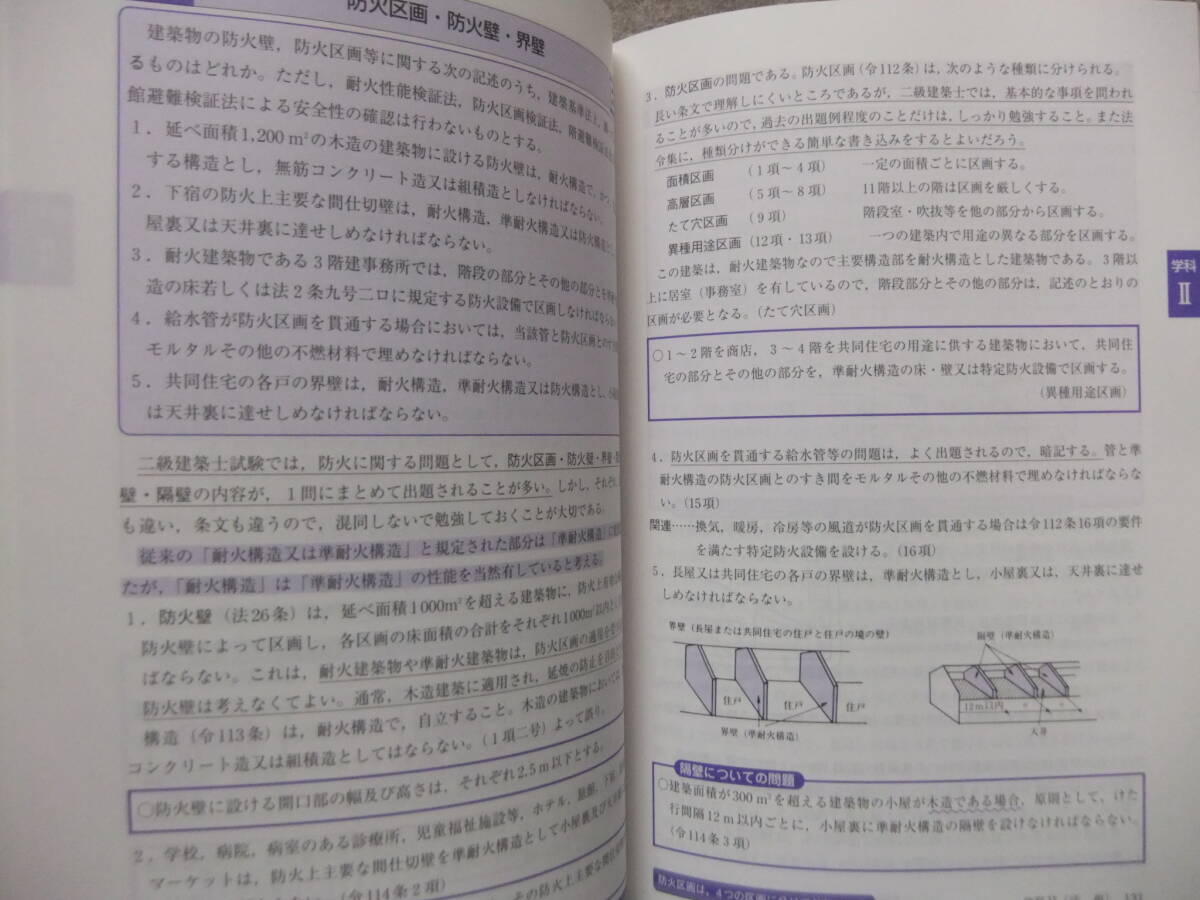 防火区画・防火壁・界壁
建築物の防火壁，防火区画等に関する次の記述のうち，建築基準法上，誤
るものはどれか。ただし，耐火性能検証法，防火区画検証法，階避難検証法
館避難検証法による安全性の確認は行わないものとする。
1．延べ面積1,200 m²の木造の建築物に設ける防火壁は，耐火構造で，かつ，
する構造とし，無筋コンクリート造又は組積造としなければならない。
2．下宿の防火上主要な間仕切壁は，耐火構造，準耐火構造又は防火構造と
屋裏又は天井裏に達せしめなければならない。
3．耐火建築物である3階建事務所では，階段の部分とその他の部分とを
造の床若しくは法2条九号ニロに規定する防火設備で区画しなければならない
4．給水管が防火区画を貫通する場合においては，当該管と防火区画とのすき間
モルタルその他の不燃材料で埋めなければならない。
5．共同住宅の各戸の界壁は，耐火構造，準耐火構造又は防火構造とし，小屋
は天井裏に達せしめなければならない。
二級建築士試験では，防火に関する問題として，防火区画・防火壁・界壁・
壁・隔壁の内容が，1問にまとめて出題されることが多い。しかし，それぞれ
も違い，条文も違うので，混同しないで勉強しておくことが大切である。
従来の「耐火構造又は準耐火構造」と規定された部分は「準耐火構造」に
たが，「耐火構造」は「準耐火構造」の性能を当然有していると考える。
1．防火壁（法26条）は，延べ面積1000m²を超える建築物に，防火上有効な
防火壁によって区画し，各区画の床面積の合計をそれぞれ1000m²以内とし
ばならない。これは，耐火建築物や準耐火建築物は，防火区画の適用を受
防火壁は考えなくてよい。通常，木造建築に適用され，延焼の防止を目的
構造（令113条）は，耐火構造で，自立すること。木造の建築物においては
コンクリート造又は組積造としてはならない。（1項二号）よって誤り。
○防火壁に設ける開口部の幅及び高さは，それぞれ2.5m以下とする。
2．学校，病院，病室のある診療所，児童福祉施設等，ホテル，旅館，下宿，
マーケットは，防火上主要な間仕切壁を準耐火構造として小屋裏又は天井
（令114条2項）
3．防火区画の問題である。防火区画（令112条）は，次のような種類に分けられる。
長い条文で理解しにくいところであるが，二級建築士では，基本的な事項を問われ
ることが多いので，過去の出題例程度のことだけは，しっかり勉強すること。また法
令集に，種類分けができる簡単な書き込みをするとよいだろう。
面積区画　（1項～4項）　一定の面積ごとに区画する。
高層区画　（5項～8項）　11階以上の階は区画を厳しくする。
たて穴区画　（9項）　階段室・吹抜等を他の部分から区画する。
異種用途区画（12項・13項）　一つの建築内で用途の異なる部分を区画する。
この建築は，耐火建築物なので主要構造部を耐火構造とした建築物である。3階以
上に居室（事務室）を有しているので，階段部分とその他の部分は，記述のとおりの
区画が必要となる。（たて穴区画）
学科
Ⅱ
○1～2階を商店，3～4階を共同住宅の用途に供する建築物において，共同住
宅の部分とその他の部分を，準耐火構造の床・壁又は特定防火設備で区画する。
（異種用途区画）
4．防火区画を貫通する給水管等の問題は，よく出題されるので，暗記する。管と準
耐火構造の防火区画とのすき間をモルタルその他の不燃材料で埋めなければならな
い。（15項）
関連……換気，暖房，冷房等の風道が防火区画を貫通する場合は令112条16項の要件
を満たす特定防火設備を設ける。（16項）
5．長屋又は共同住宅の各戸の界壁は，準耐火構造とし，小屋裏又は，天井裏に達せ
しめなければならない。
界壁（長屋または共同住宅の住戸と住戸の境の壁）
住戸　住戸　住戸
界壁（準耐火構造）
隔壁（準耐火構造）
12m以内　〃　〃
天井
隔壁についての問題
○建築面積が300 m²を超える建築物の小屋が木造である場合，原則として，けた
行間隔12 m以内ごとに，小屋裏に準耐火構造の隔壁を設けなければならない。
（令114条3項）
防火区画は，4つの区画に
131